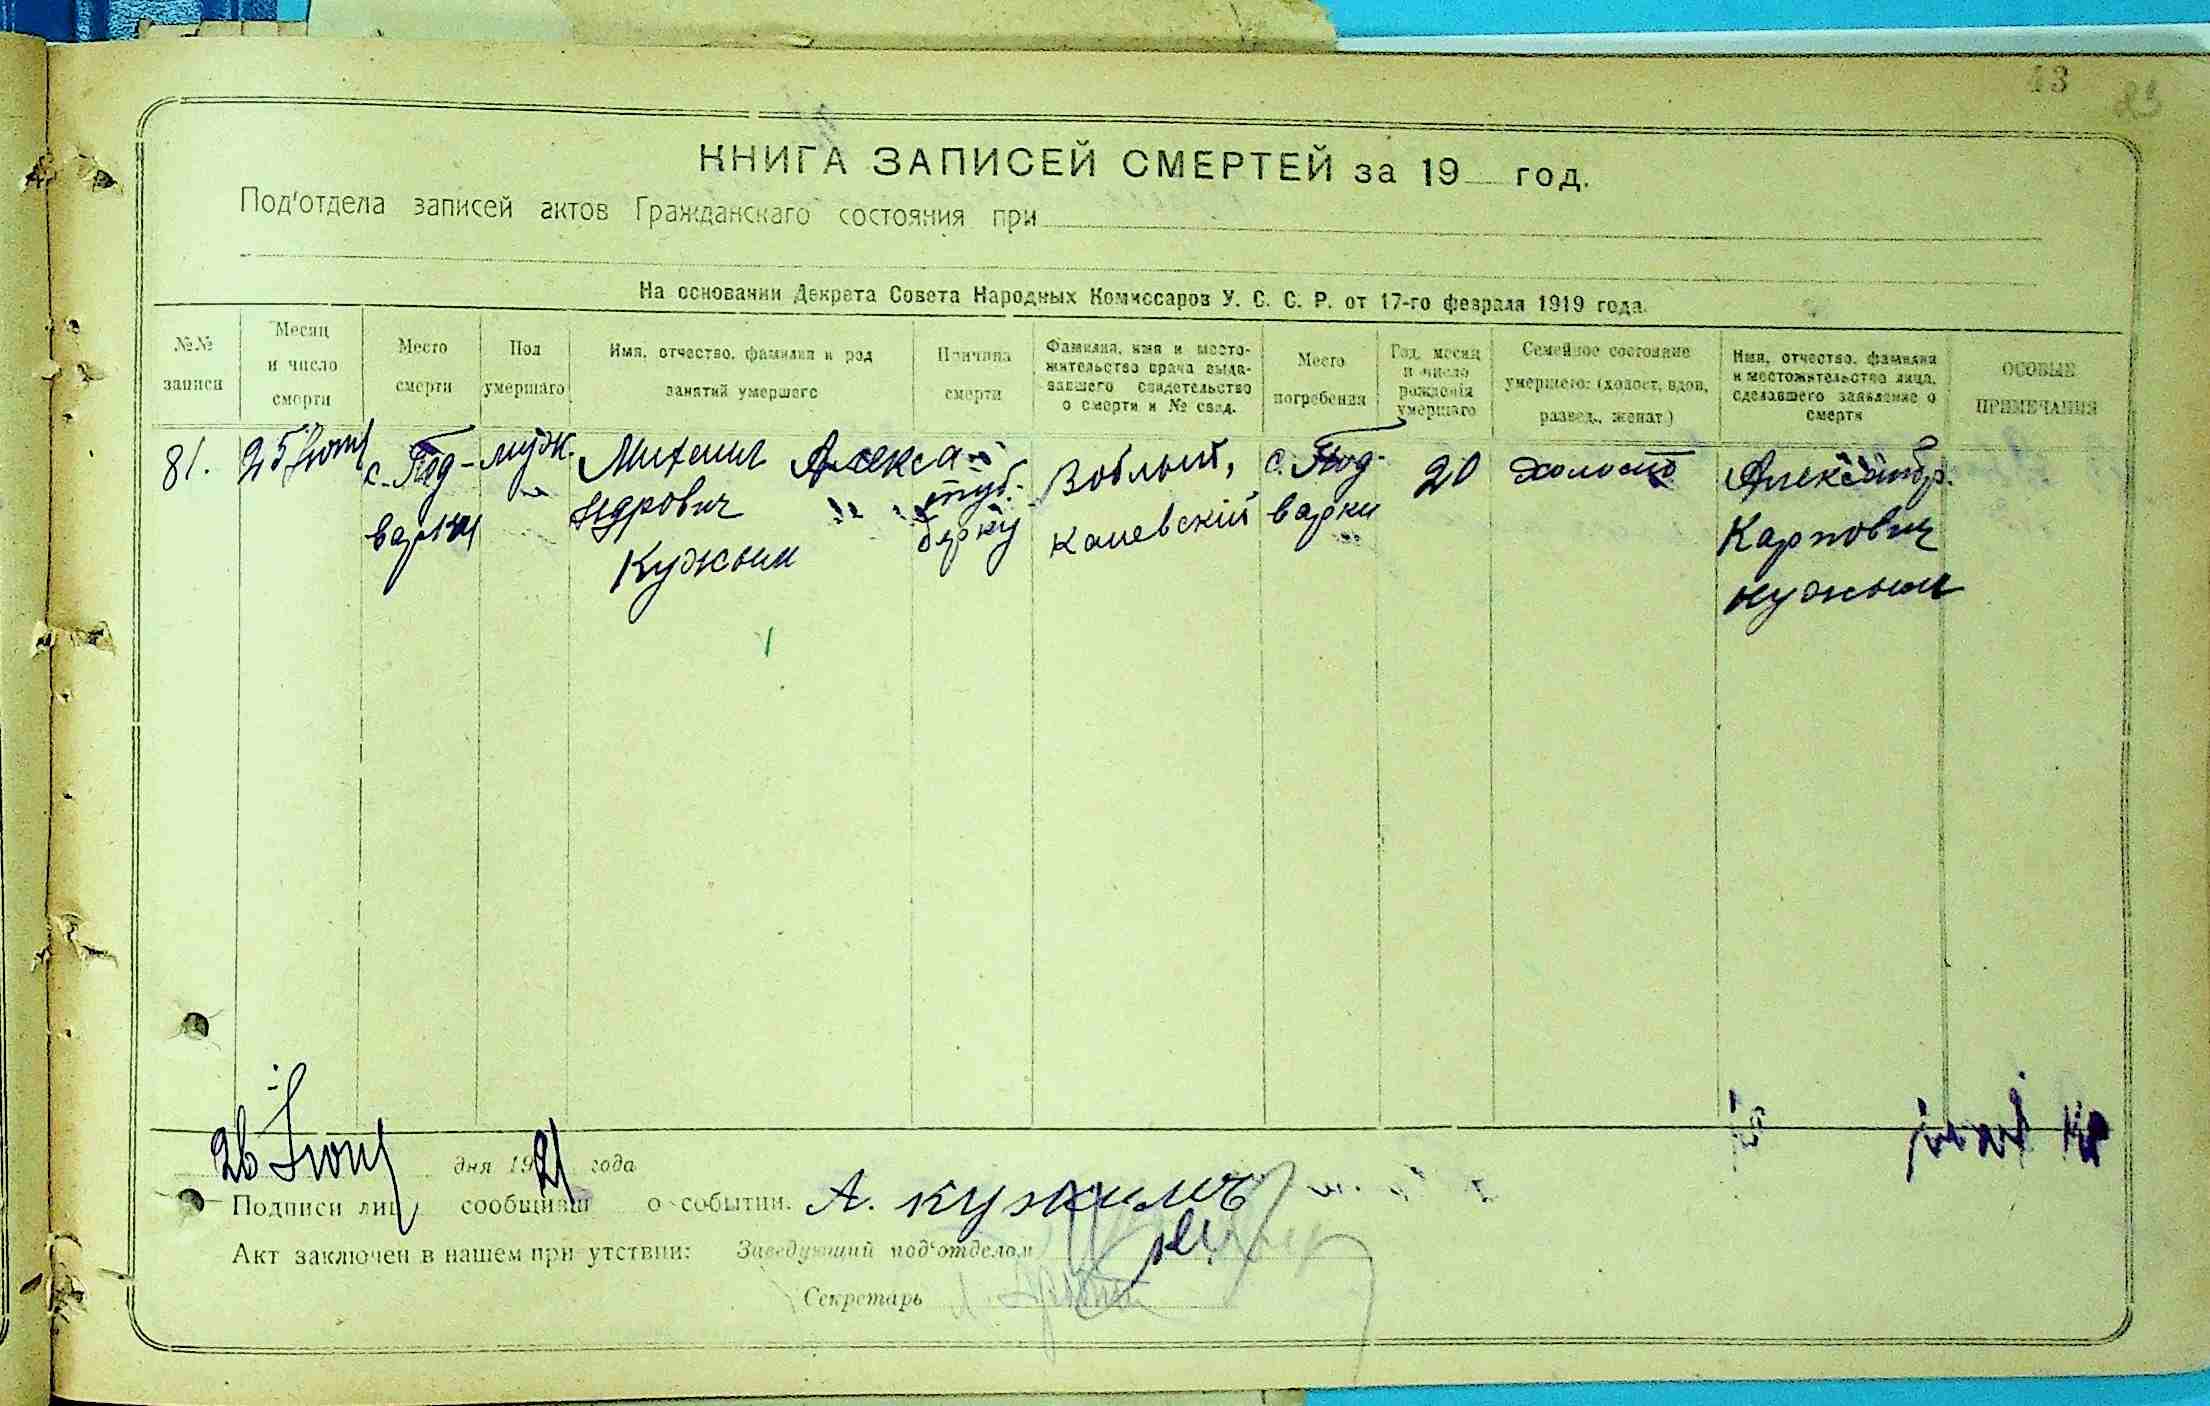 13
23
КНИГА ЗАПИСЕЙ СМЕРТЕЙ за 19 год.
Под'отдела записей актов Гражданскаго состояния при
На основании Декрета Совета Народных Комиссаров У. С. С. Р. от 17-го февраля 1919 года.
№№ записи
Месяц и число смерти
Место смерти
Пол умершаго
Имя, отчество, фамилия и род занятий умершего
Причина смерти
Фамилия, имя и место-
жительство врача выда-
вавшего свидетельство
о смерти и № свид.
Место погребения
Год, месяц
и число
рождения
умершаго
Семейное состояние
умершего: (холост, вдов,
развед., женат.)
Имя, отчество, фамилия
и местожительство лица,
сделавшего заявление о
смерти
ОСОБЫЕ ПРИМЕЧАНИЯ
81.
25 Июня
с. Под-
варки
муж.
Михаил Алекса-
ндрович
Кужым
туб-
берку
Воблый,
каневский
с. Под-
варки
20
холост
Александр.
Карпович
кужым
26 Июня дня 1921 года
Подписи лиц сообщивш о событии. А. кужилъ
Акт заключен в нашем при утствии: Заведующий под'отделом
Секретарь